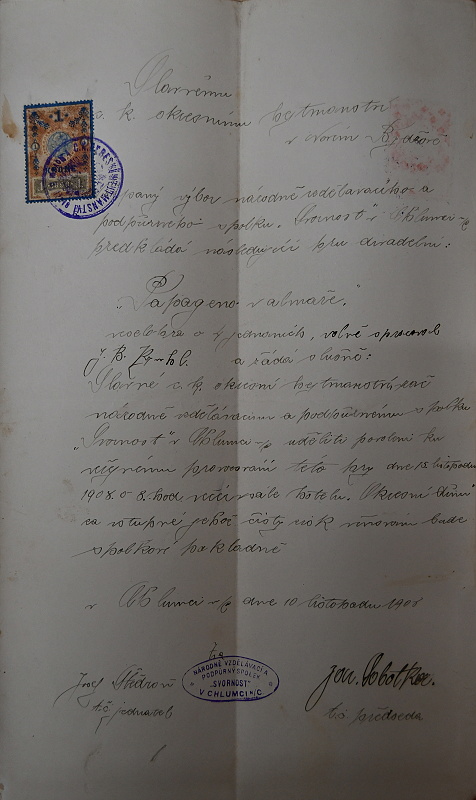 Slavnému
c. k. okresnímu hejtmanství
v Novém Bydžově
1
podepsaný výbor národně vzdělavacího a
podpůrného spolku "Svornost" v Chlumci n/C
předkládá následující hru divadelní:
"Papageno v almaře."
veselohra o 4 jednáních, volně spracoval
J. B. a žádá slušně:
Slavné c. k. okresní hejtmanství račiž
národně vzdělávacímu a podpůrnému spolku
"Svornost" v Chlumci n/C uděliti povolení ku
veřejnému provozování této hry dne 15. listopadu
1908 o 8. hod večer v sále hotelu. "Okresní dům"
za vstupné jehož čistý zisk věnován bude
spolkové pokladně
v Chlumci n/C dne 10 listopadu 1908
Za
NÁRODNĚ VZDĚLÁVACÍ A
PODPŮRNÝ SPOLEK
"SVORNOST"
V CHLUMCI N/C
Josef
t. č. jednatel
Jan. Sobotka.
t. č. předseda